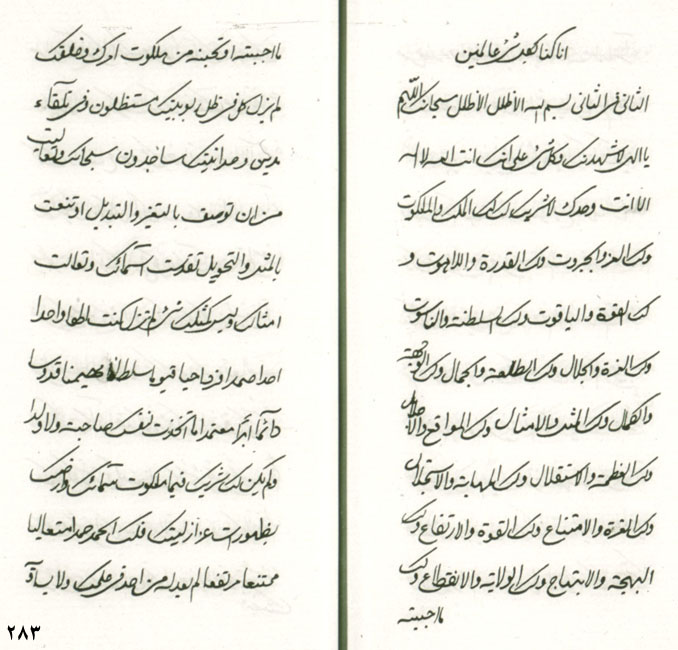 انا كنا بكل شئ عالمين
الثانى فى الثانى بسم الله الأظلل الأظلل سبحانك اللهم
يا الهى لاشهدنك وكل شئ على انك انت الله لا اله
الا انت وحدك لا شريك لك لك الملك والملكوت
ولك العز والجبروت ولك القدرة واللاهوت و
لك القوة والياقوت ولك السلطنة والناسوت
ولك العزة والجلال ولك الطلعة والجمال ولك الوجهة
والكمال ولك المثل والامثال ولك المواقع والاجلال
ولك العظمة والاستقلال ولك المهابة والاستجلال
ولك العزة والامتناع ولك القوة والارتفاع ولك
البهجة والابتهاج ولك الولاية والانقطاع ولك
ما احببته
ما احببته او تحبنه من ملكوت امرك وخلقك
لم يزل كل فى ظل ربوبيتك مستظلون وفى تلقاء
مدين وحدانيتك ساجدون سبحانك وتعاليت
من ان توصف بالتغير والتبديل او تنعت
بالمثل والتحويل تقدست اسمائك وتعالت
امثالك وليس كمثلك شئ لم تزل كنت الها واحدا
احدا صمدا فردا حيا قيوما سلطانا مهيمنا قدوسا
دائما ابدا معتمدا ما اتخذت لنفسك صاحبة ولا ولدا
ولم يكن لك شريك فيما ملكوت سمائك وارضك
بظهورات عز ازليتك فلك الحمد حمدا متعاليا
ممتنعا مرتفعا لم يعدله من احد فى علمك ولا يساوقه
٢٨٣